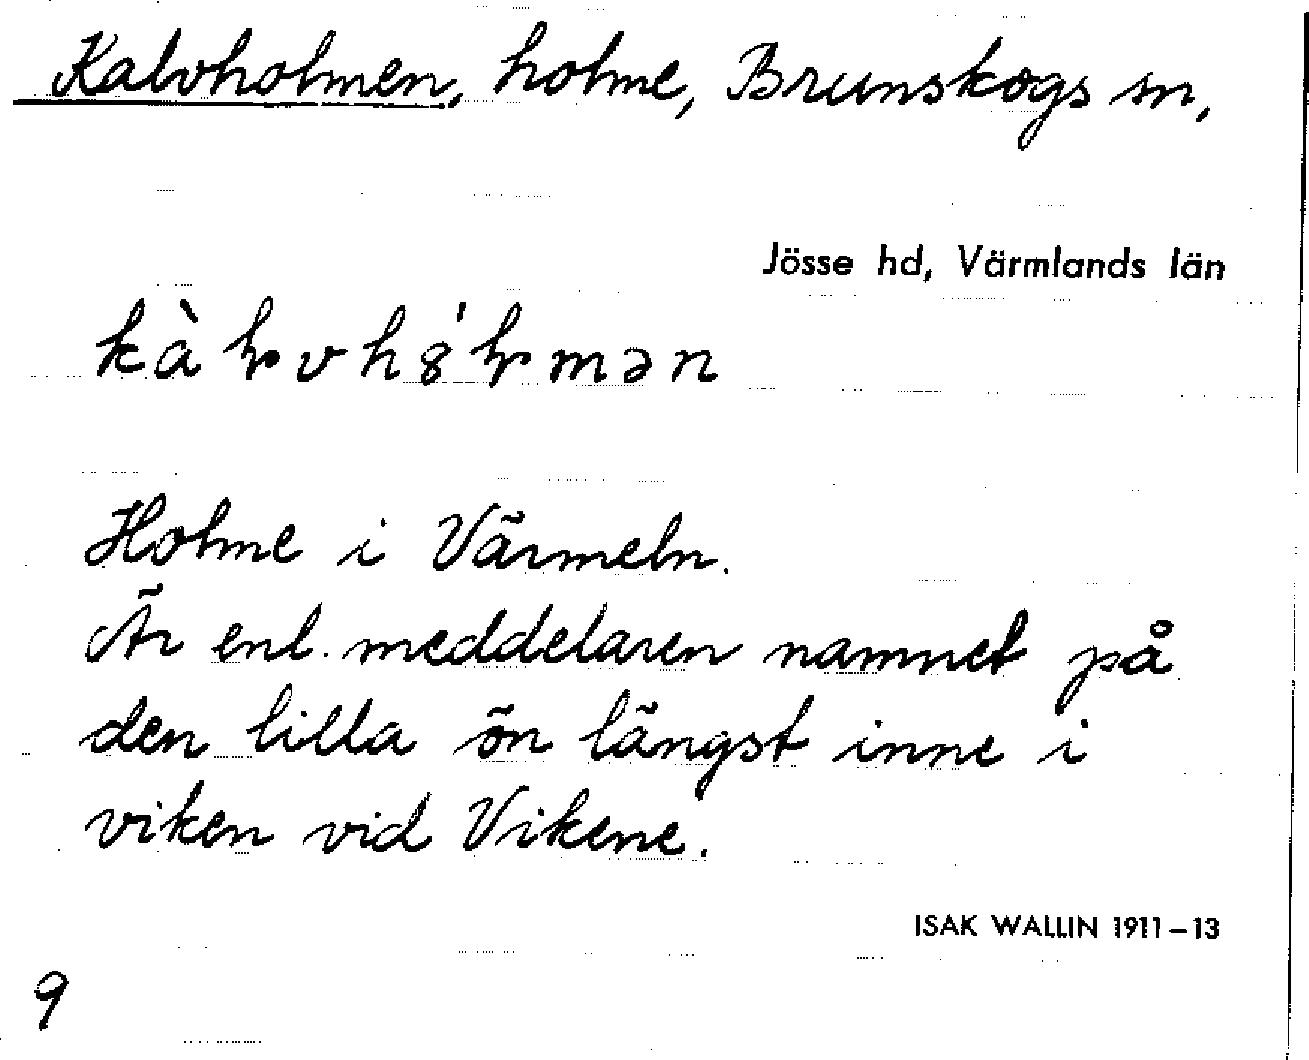 Kalvholmen, holme, Brunskogs sn,
Jösse hd, Värmlands län
kàl̥vh8́l̥mən
Holme i Värmeln.
Är enl. meddelaren namnet på
den lilla ön längst inne i
viken vid Vikene.
ISAK WALLIN 1911–13
9